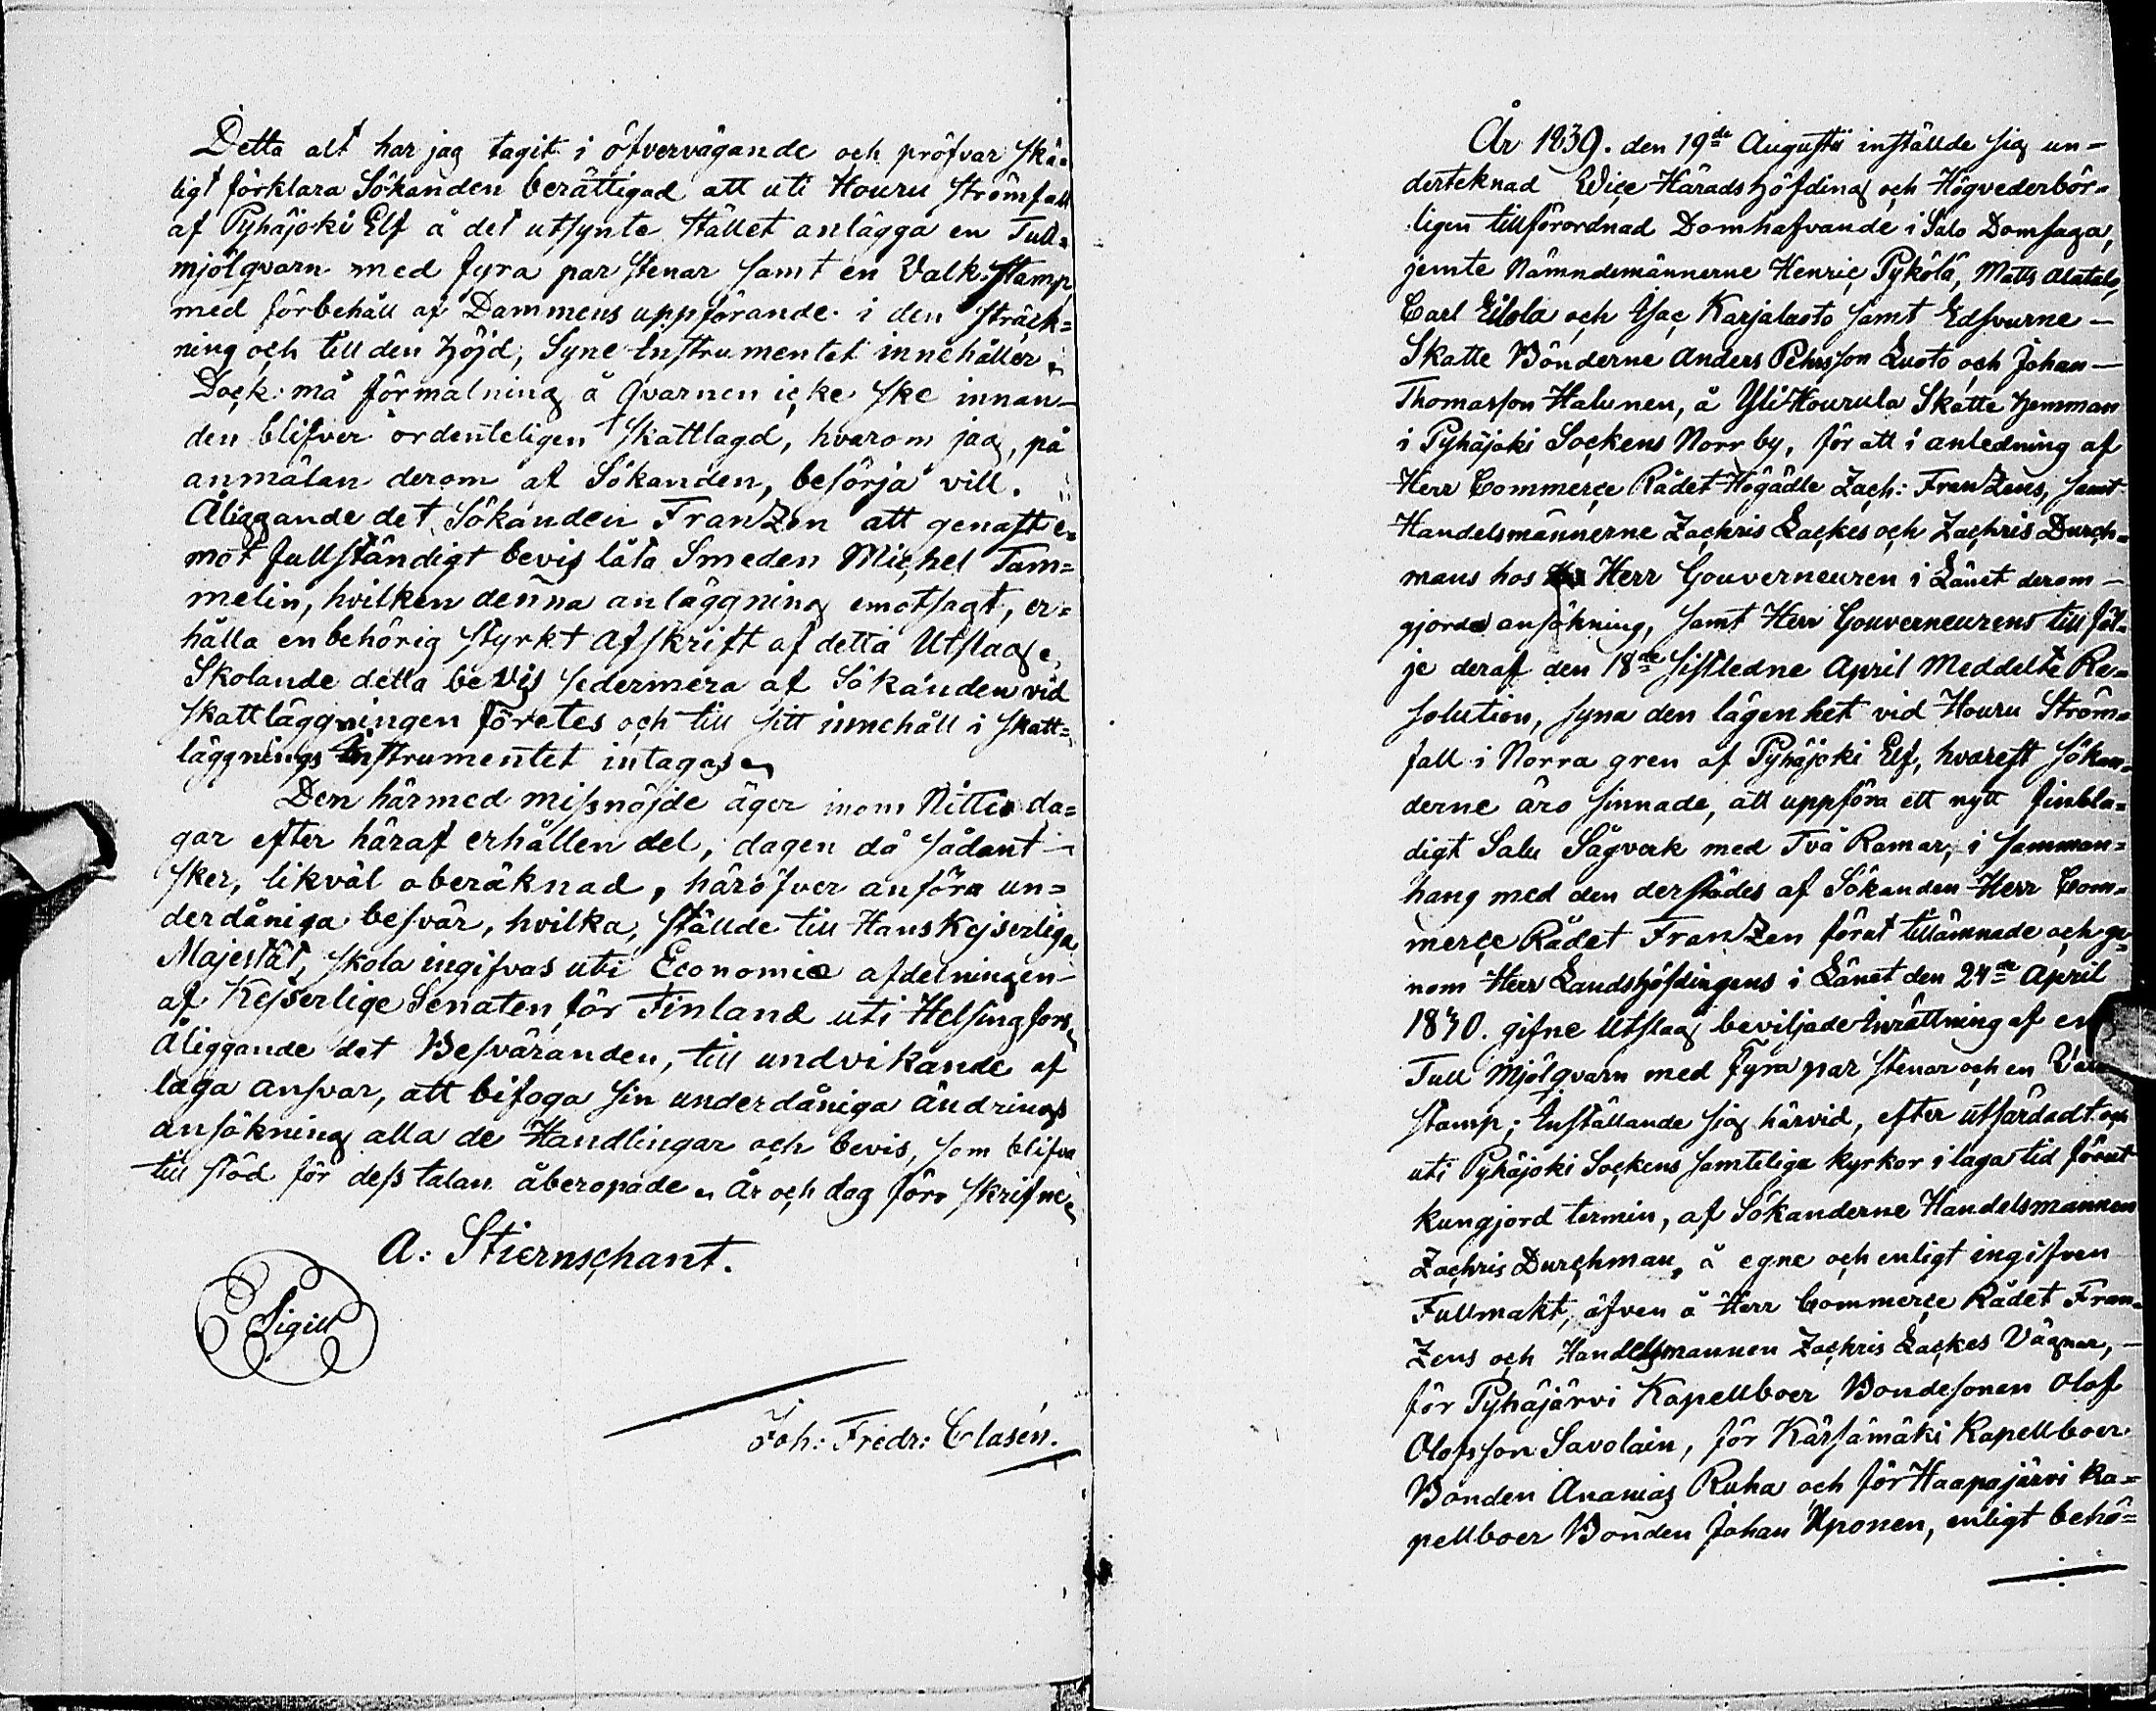 Detta alt har jag tagit i öfvervägande och pröfvar skä=
ligt förklara Sökanden berättigad att uti Houru strömfall
af Pyhäjoki Elf å det utsynte stället anlägga en Tull=
mjölqvarn med fyra par stenar samt en Valk stamp,
med förbehåll af Dammens uppförande i den sträck=
ning och till den höjd, Syne Instrumentet innehåller.
Dock må förmalning å Qvarnen icke ske innan
den blifver ordenteligen skattlagd, hvarom jag, på
anmälan derom af Sökanden, besörja vill.
Åliggande det Sökanden Franzén att genast e=
mot fullständigt bevis låta Smeden Michel Tam=
melin, hvilken denna anläggning emotsagt, er=
hålla en behörig styrkt Afskrift af detta Utslag,
Skolande detta bevis sedermera af Sökanden vid
skattläggningen företes och till sitt innehåll i skatt=
läggnings Instrumentet intagas.
Den härmed missnöjde äger inom Nittio da=
gar efter häraf erhållen del, dagen då sådant
sker, likväl oberäknad, häröfver anföra un=
derdåniga besvär, hvilka, ställde till Hans Kejserliga
Majestät, skola ingifvas uti Economie afdelningen
af Kejserlige Senaten för Finland uti Helsingfors,
Åliggande det Besväranden, till undvikande af
laga ansvar, att bifoga sin underdåniga ändrings
ansökning alla de Handlingar och bevis, som blifva
till stöd för dess talan åberopade. År och dag förr skrifne.
A: Stiernschant.
Sigill
Joh: Fredr: Clasén.
År 1839. den 19de Augustii inställde sig un-
derteknad Wice Häradshöfding och Högvederbör=
ligen tillförordnad Domhafvande i Salo Domsaga,
jemte Nämndemännerne Henric Pykölä, Matts Alatalo,
Carl Eilola och Isac Karjaluoto samt Edsvurne -
Skatte Bönderne Anders Pehrsson Luoto och Johan -
Thomasson Halunen, å Yli Hourula Skatte hemman
i Pyhäjoki Sockens Norr by, för att i anledning af
Herr Commerce Rådet Högädle Zach: Franzens, samt
Handelsmännerne Zachris Lackes och Zachris Durch=
mans hos Herr Gouverneuren i Länet derom -
gjorde ansökning, samt Herr Gouverneurens till föl=
je deraf den 18de sistledne April Meddelte Re=
solution, syna den lägenhet vid Houru Ström=
fall i Norra gren af Pyhäjoki Elf, hvarest Sökan=
derne äro sinnade, att uppföra ett nytt finbla=
digt Salu Sågverk med Två Ramar, i samman=
hang med den derstädes af Sökanden Herr Com=
merce Rådet Franzen förut tillämnade och ge=
nom Herr Landshöfdingens i Länet den 24de April
1830. gifne Utslag beviljade Inrättning af en
Tull Mjölqvarn med Fyra par stenar och en
stamp; Inställande sig härvid, efter utfärdadt och
uti Pyhäjoki Sockens samtelige kyrkor i laga tid förut
kungjord termin, af Sökanderne Handelsmannen
Zachris Durchman, å egne och enligt ingifven
Fullmakt, äfven å Herr Commerce Rådet Fran=
zens och Handelsmannen Zachris Lackes Vägnar, -
för Pyhäjärvi Kapellboer Bondesonen Olof
Olofsson Savolain, för Kärsämäki Kapellboer
Bonden Ananias Ruha och för Haapajärvi Ka=
pellboer Bonden Johan Uponen, enligt behö=